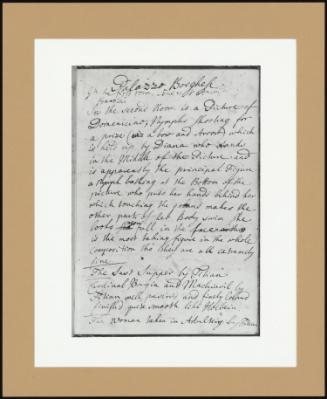 Palazzo Borghese
In the first room
In the second Room is a Picture of
Domenicino, Nymphs shooting for
a prize (viz a bow and Arrows) which
is held up by Diana who stands
in the Middle of the Picture and
is apparently the principal Figure
a Nymph bathing at the Bottom of the
picture who puts her hands behind her
which touching the ground makes the
other parts of her Body swim she
looks full in the face
is the most taking figure in the whole
Composition tho they are all extremely
fine
The Last Supper by Titian
Cardinal Borgia and Machiavil by
Titian well pavirs and finely Coloured
finished quite smooth like Holbein
The Woman taken in Adultery by Titian